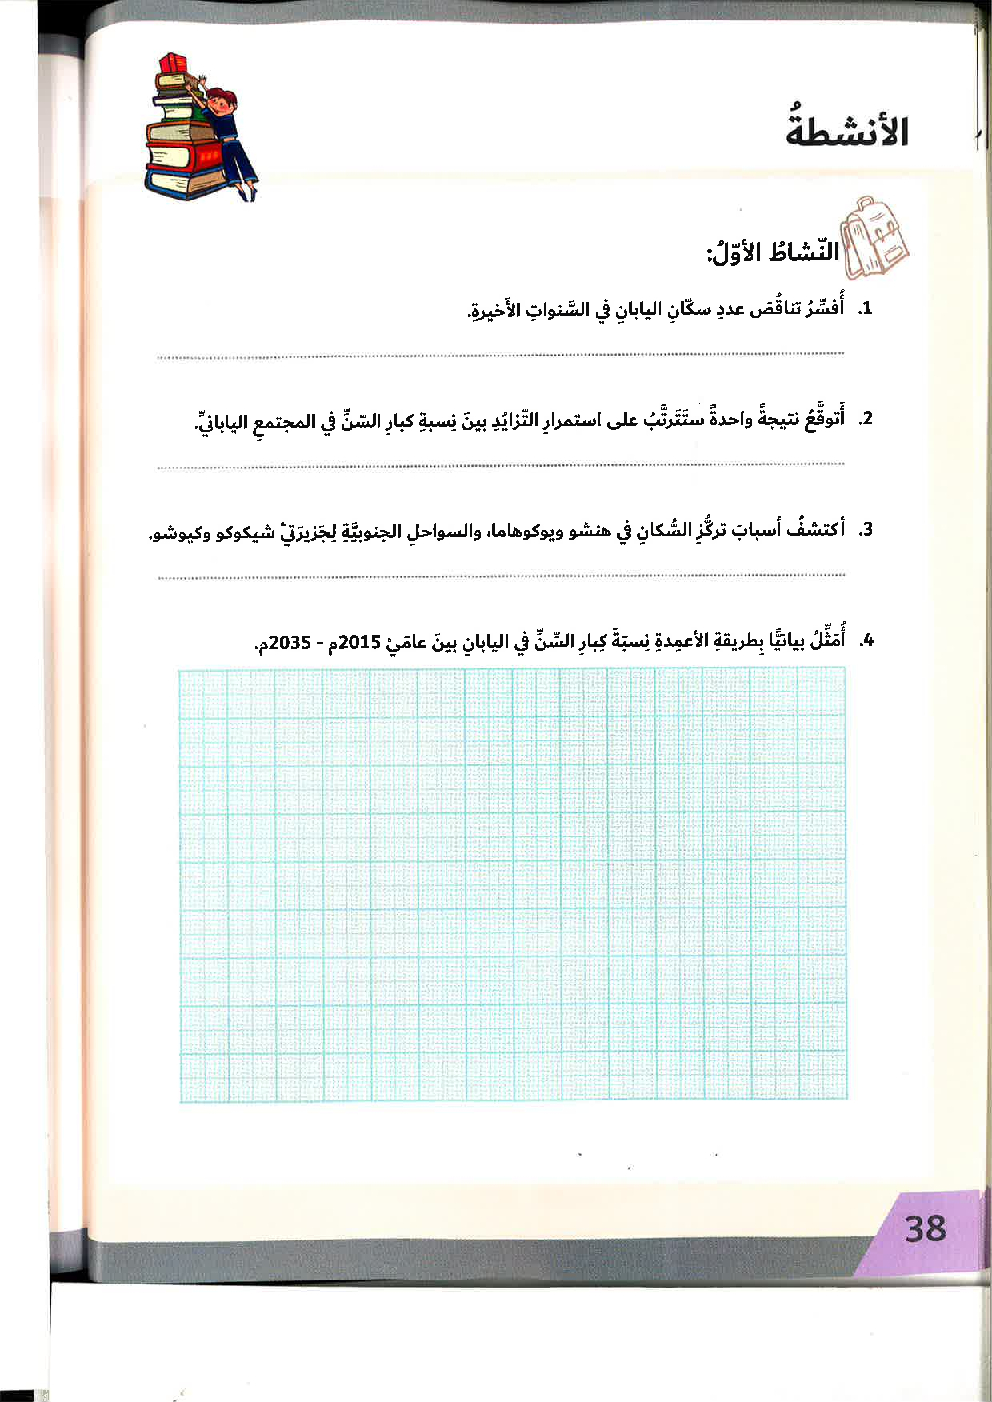 الأنشطةُ
النّشاطُ الأوّلُ:
1. أُفسِّرُ تناقُصَ عددِ سكّانِ اليابانِ في السَّنواتِ الأخيرةِ.
2. أَتوقَّعُ نتيجةً واحدةً ستَتَرتَّبُ على استمرارِ التّزايُدِ بينَ نِسبةِ كبارِ السّنِّ في المجتمعِ اليابانيِّ.
3. أكتشفُ أسبابَ تركُّزِ السُّكانِ في هنشو ويوكوهاما، والسواحلِ الجنوبيَّةِ لِجَزيرَتيْ شيكوكو وكيوشو.
4. أُمَثِّلُ بيانيًّا بِطريقةِ الأعمِدةِ نِسبَةَ كِبارِ السَّنِّ في اليابانِ بينَ عامَيْ 2015م - 2035م.
38